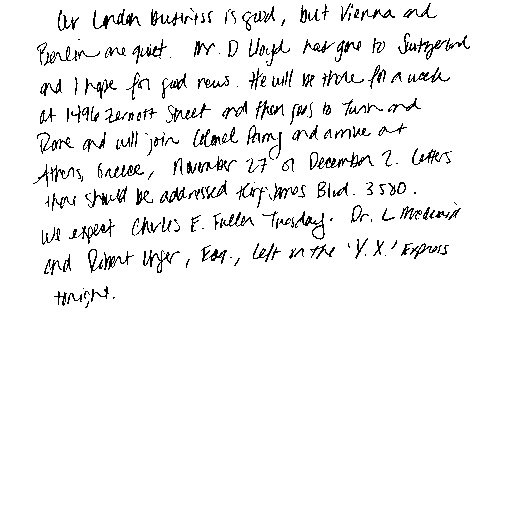 Our London business is good, but Vienna and
Berlin are quiet. Mr. D Lloyd has gone to Switzerland
and I hope for good news. He will be there for a week
at 1496 Zermott Street and then goes to Turin and
Rome and will join Colonel Parry and arrive at
Athens, Greece, November 27 or December 2. Letters
there should be addressed King James Blvd. 3580.
We expect Charles E. Fuller Tuesday. Dr. L McQuaid
and Robert Unger, Esq., left on the 'Y.X.' Express
tonight.